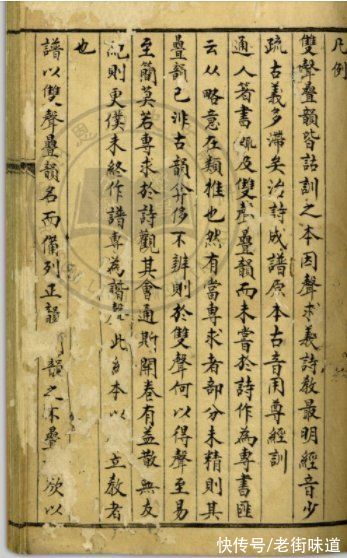 凡例
雙聲疊韻皆詁訓之本因聲求義詩教最明經音少
疏古義多滯矣治詩成譜原本古音用尊經訓
通人著書及雙聲疊韻而未嘗於詩作為專書匯
云从略意在類推也然有當專求者部分未精則其
疊韻已非古韻弇侈不辨則於雙聲何以得聲至易
至簡莫若專求於詩觀其會通斯開卷有益散無友
紀則更僕未終作譜專為譜 此 本以 立教者
也
譜以雙聲疊韻名而備列正韻 韻之不疊 欲以
快传号/老街味道